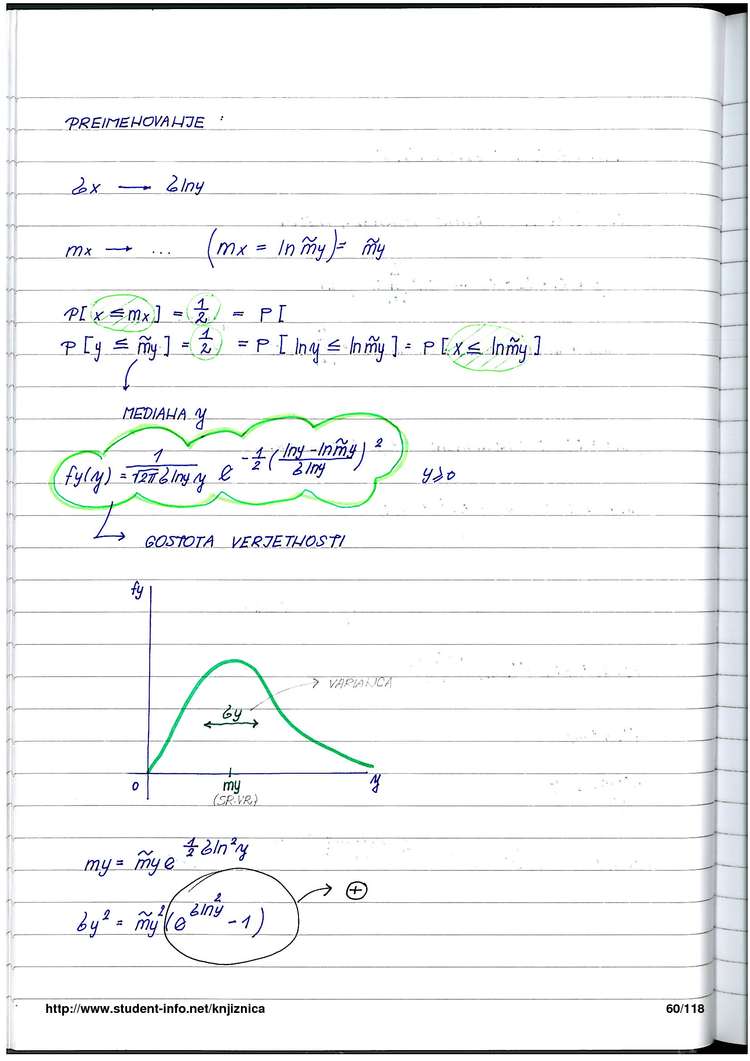 PREIMENOVANJE :
σx → σlny
mx → ... (mx = ln m̃y) = m̃y
P[ x ≤ mx ] = 1/2 = P[
P[ y ≤ m̃y ] = 1/2 = P[ lny ≤ ln m̃y ] = P[ x ≤ ln m̃y ]
MEDIANA y
fy(y) = 1/(√2π σlny y) e^(-1/2 ((lny - ln m̃y)/σlny)^2) y ≥ 0
GOSTOTA VERJETNOSTI
fy
VARIANCA
σy
0 my y
(SR.VR.)
my = m̃y e^(1/2 σln²y)
σy² = m̃y² (e^(σlny²) - 1) → ⊕
http://www.student-info.net/knjiznica 60/118